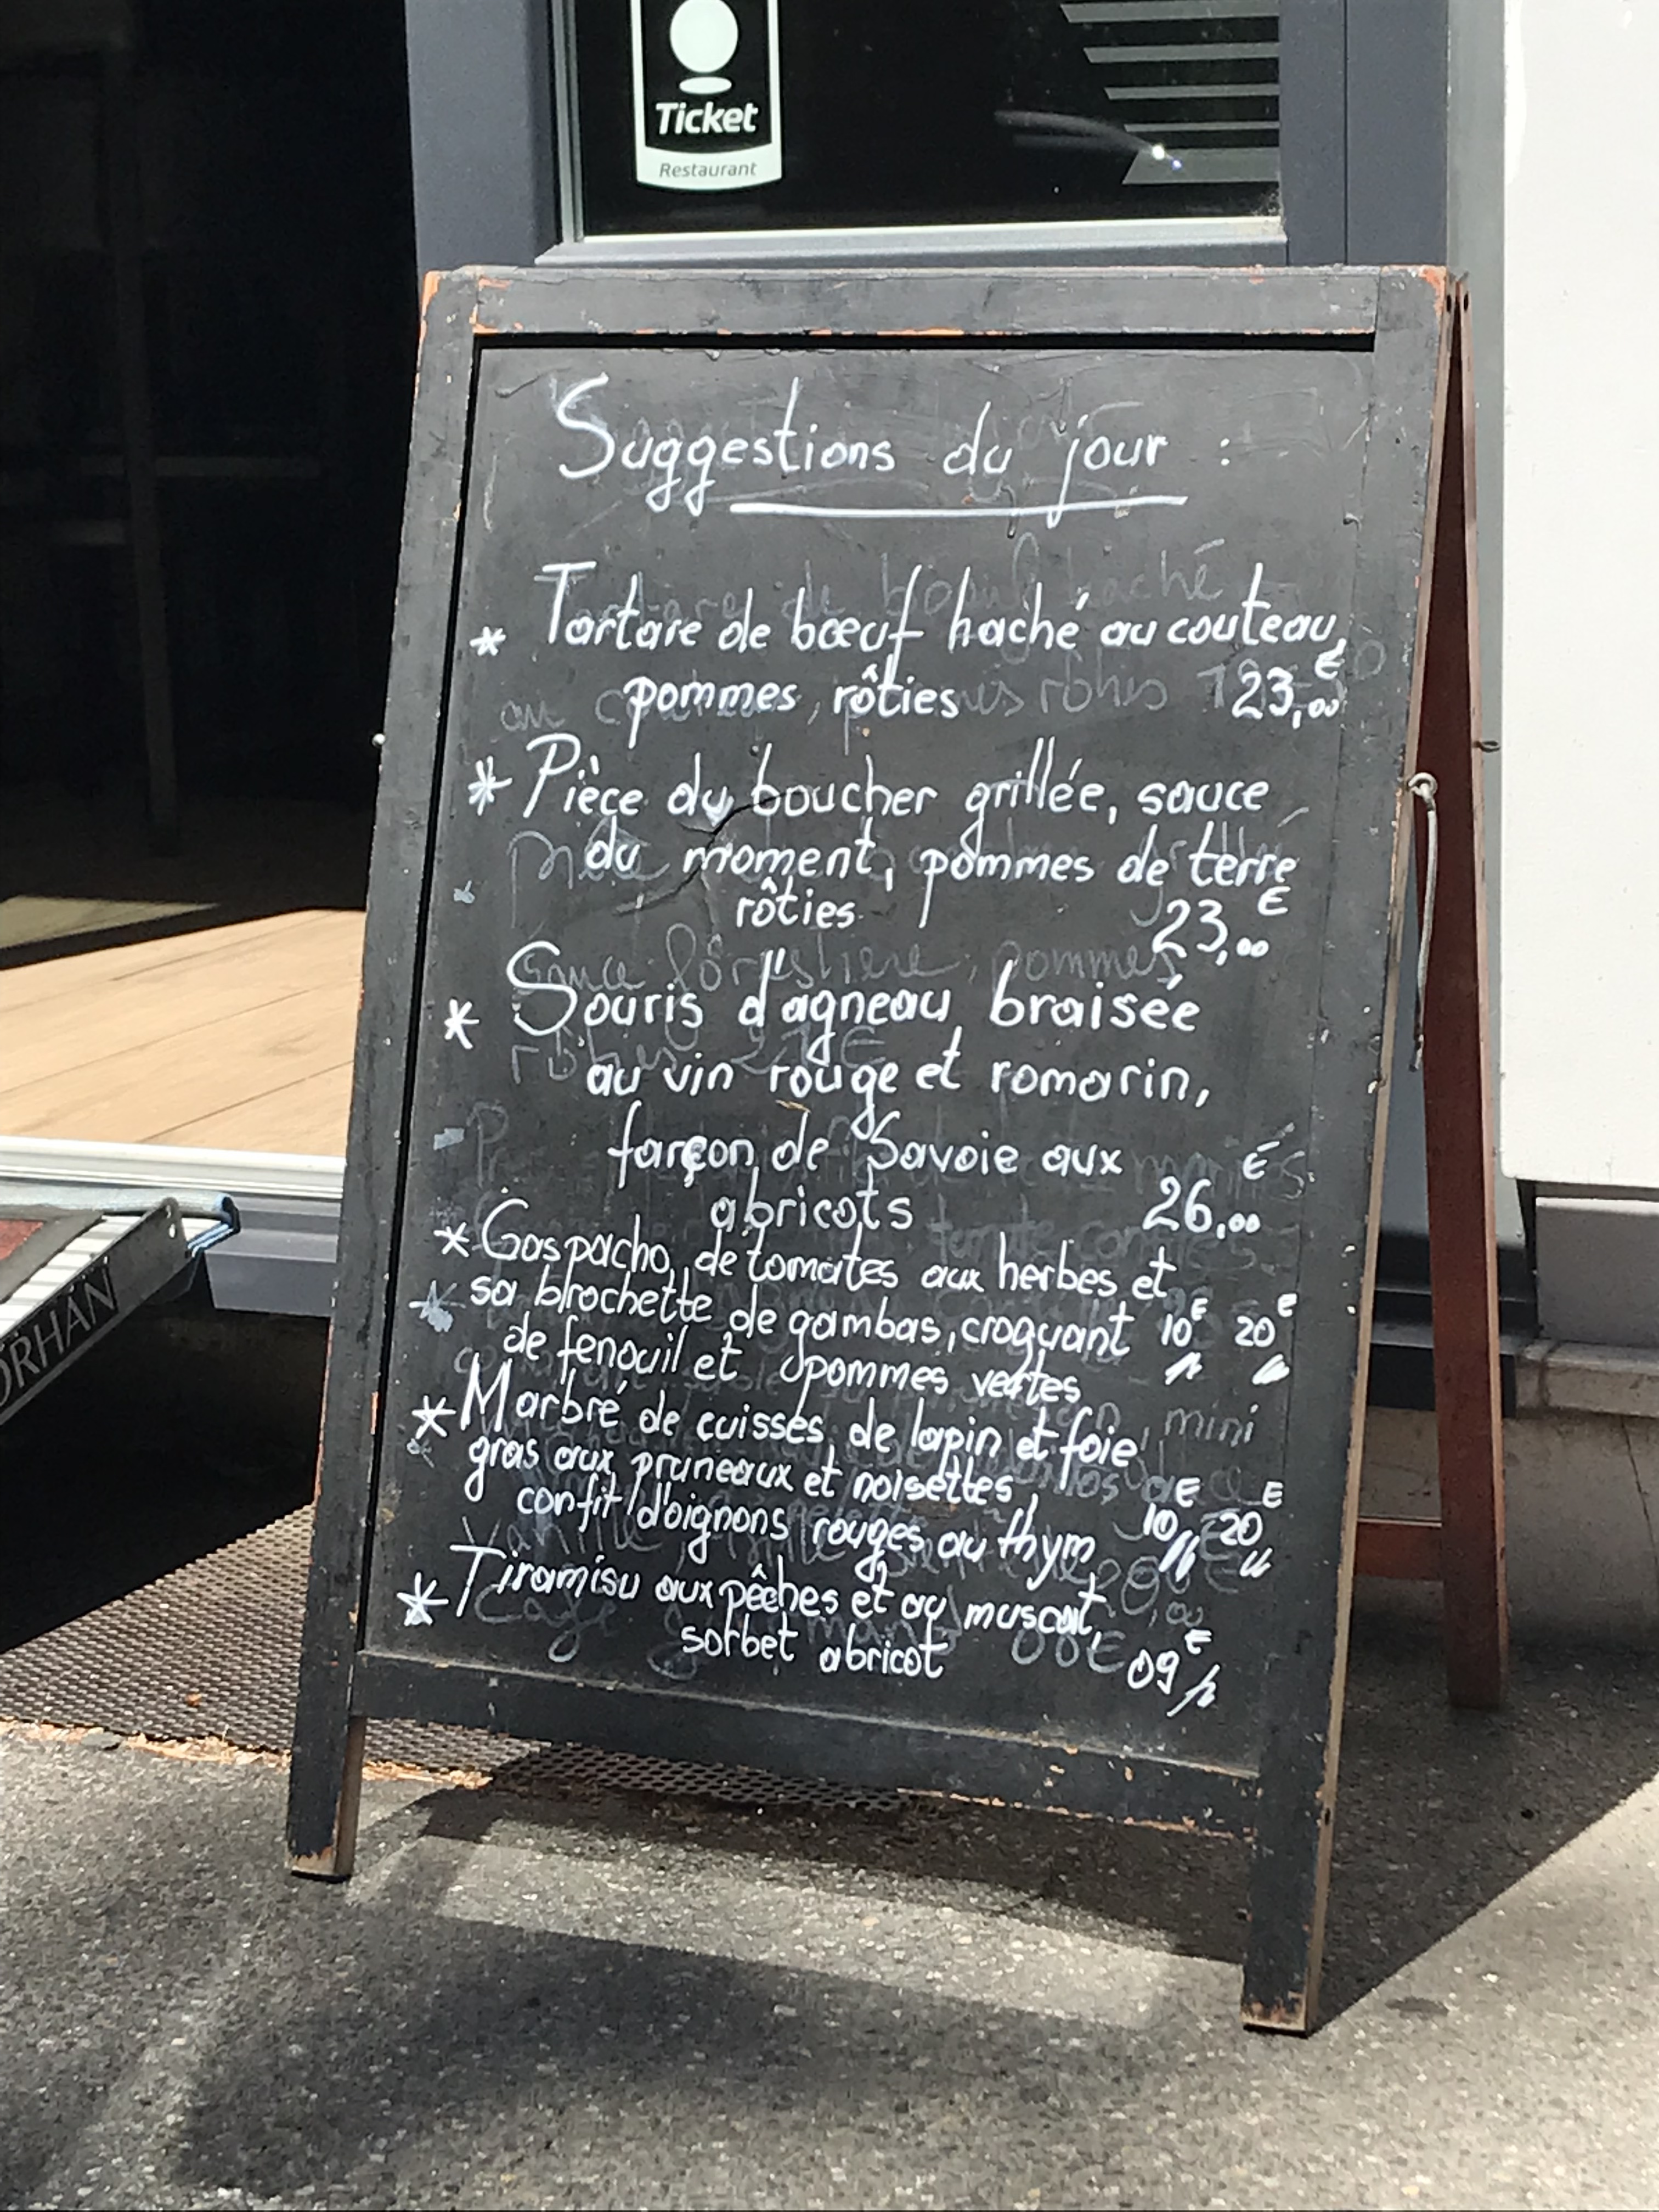 Ticket
Restaurant
Suggestions du jour :
* Tartare de bœuf haché au couteau,
pommes rôties 23,00 €
* Pièce du boucher grillée, sauce
du moment, pommes de terre
rôties 23,00 €
* Souris d'agneau braisée
au vin rouge et romarin,
farçon de Savoie aux
abricots 26,00 €
* Gaspacho de tomates aux herbes et
sa brochette de gambas, croquant 10€ 20€
de fenouil et pommes vertes
* Marbré de cuisses de lapin et foie
gras aux pruneaux et noisettes,
confit d'oignons rouges au thym 10€ 20€
* Tiramisu aux pêches et au muscat,
sorbet abricot 09€